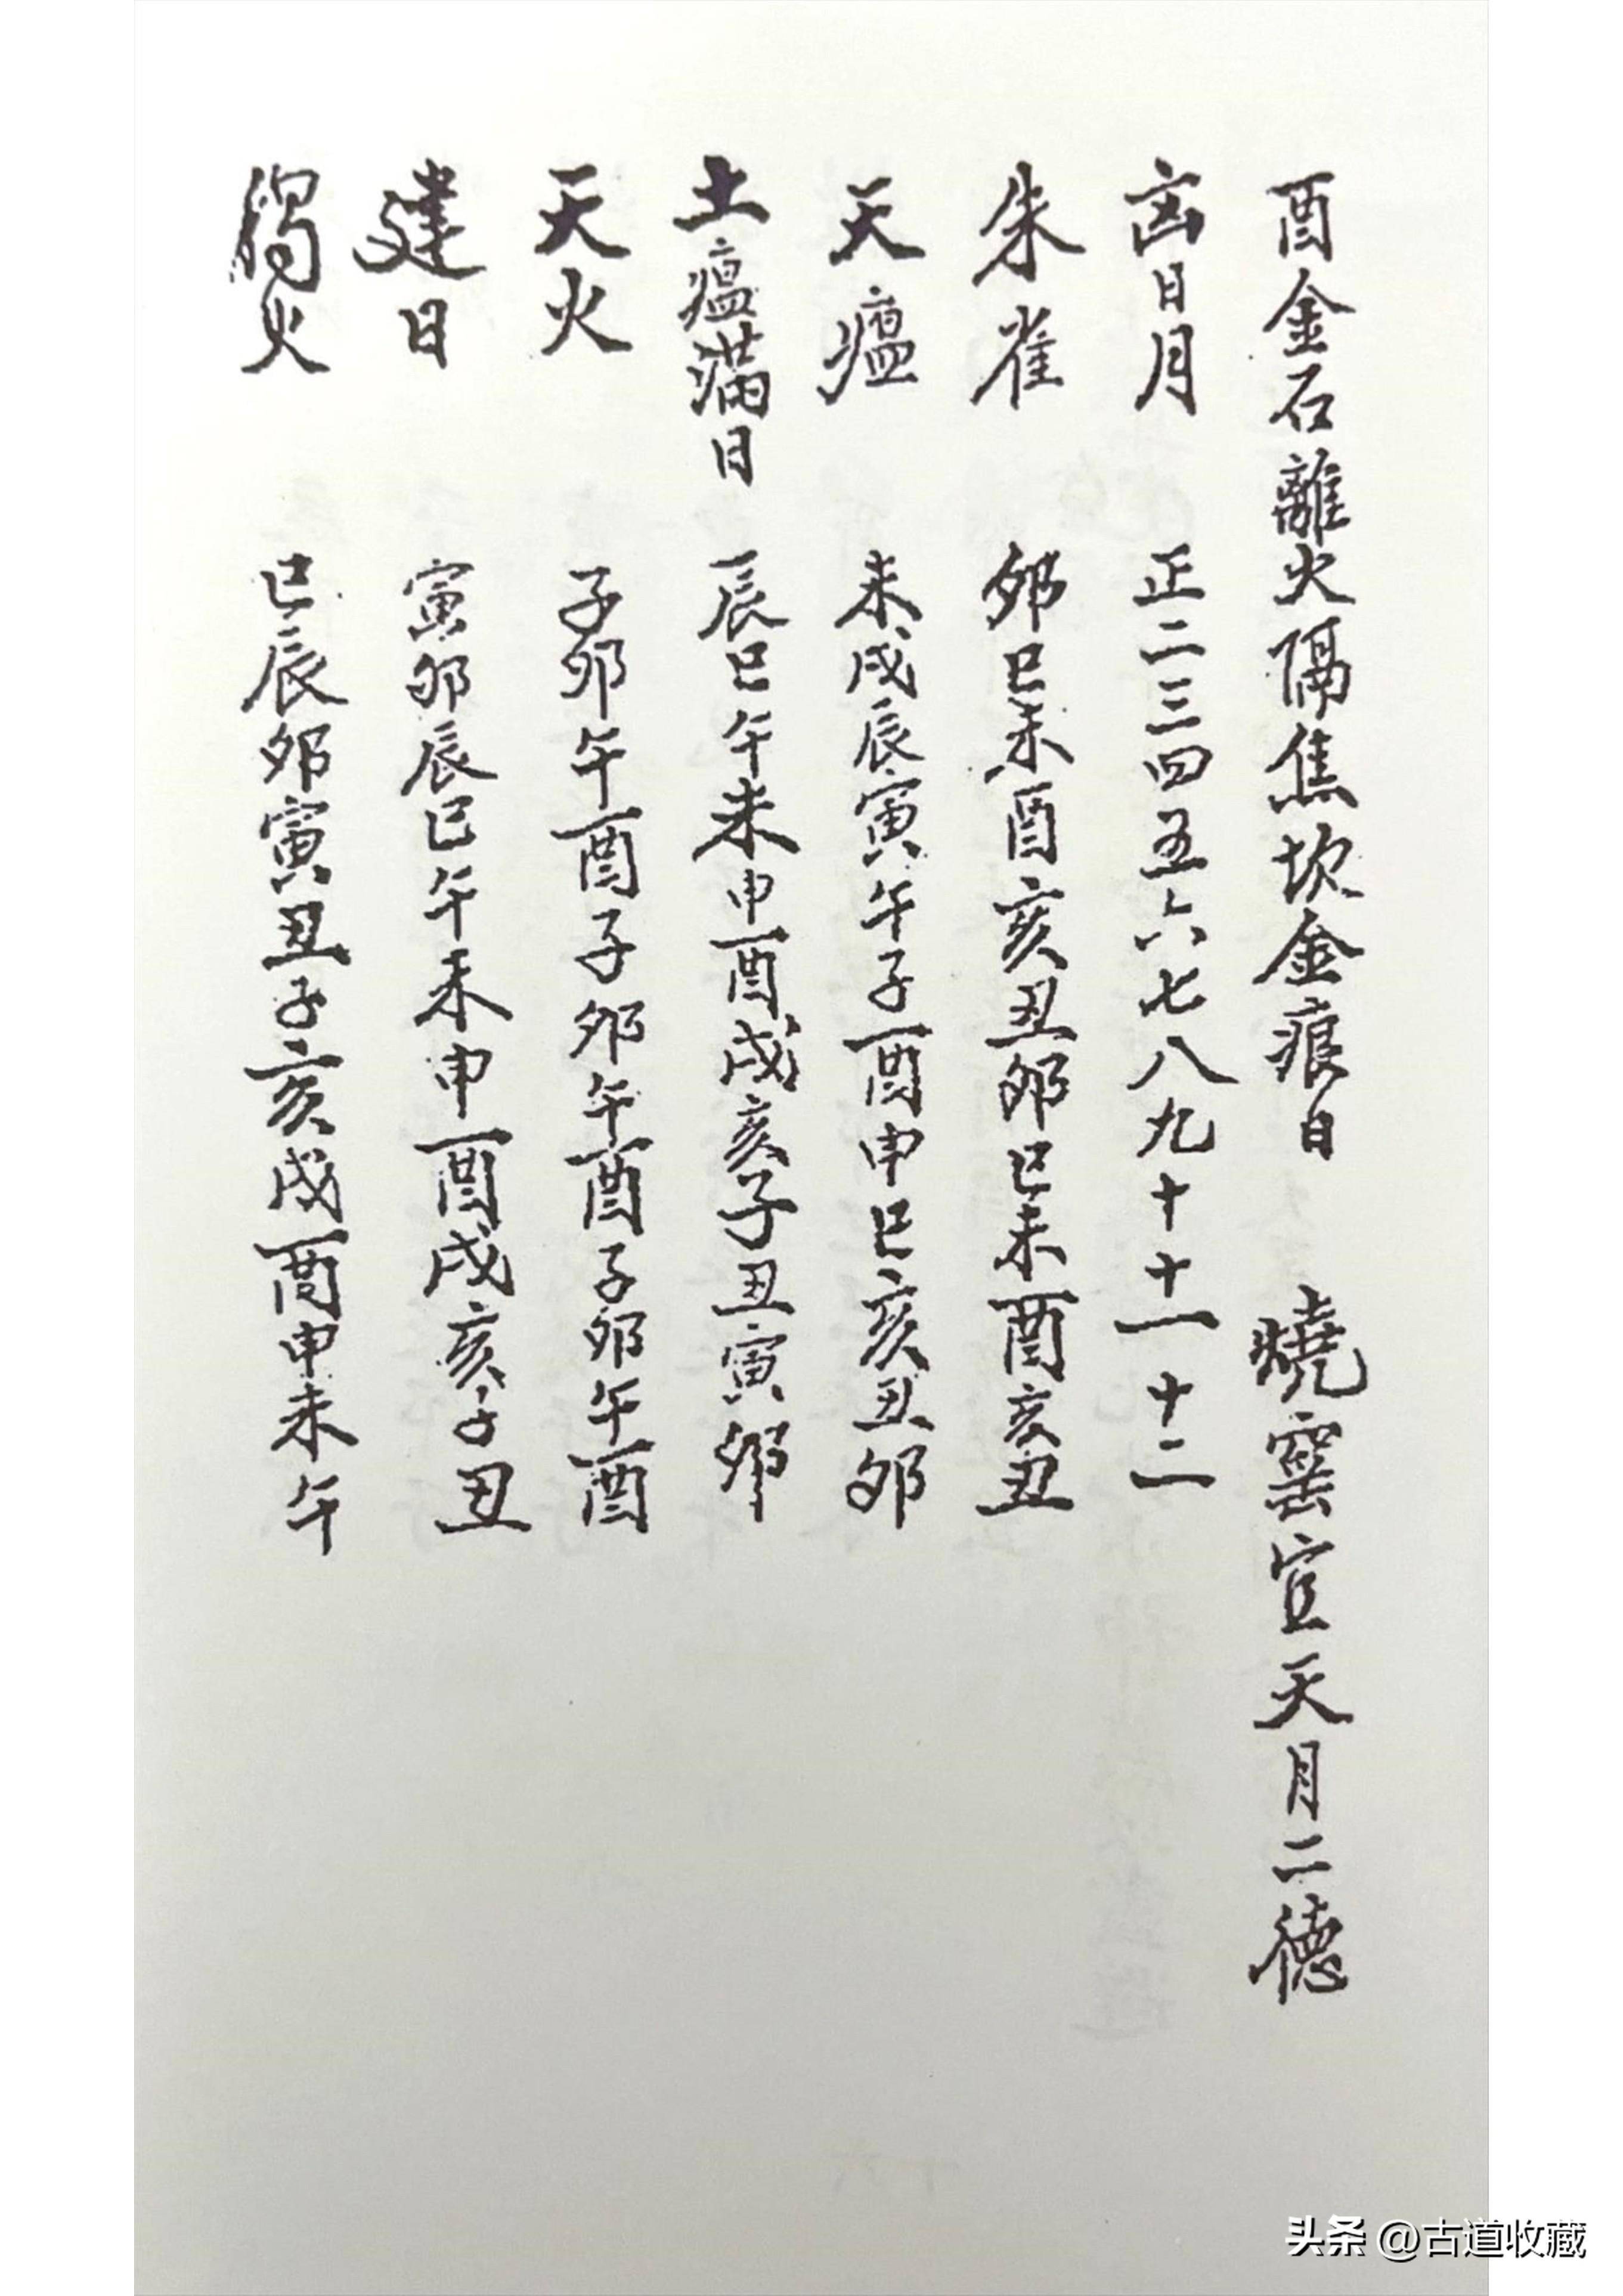 酉金石離火隔焦坎金痕日 燒窰宜天月二德
凶日月 正二三四五六七八九十十一十二
朱雀 卯巳未酉亥丑卯巳未酉亥丑
天瘟 未戌辰寅午子酉申巳亥丑卯
土瘟满日 辰巳午未申酉戌亥子丑寅卯
天火 子卯午酉子卯午酉子卯午酉
建日 寅卯辰巳午未申酉戌亥子丑
獨火 巳辰卯寅丑子亥戌酉申未午
头条 @古道收藏